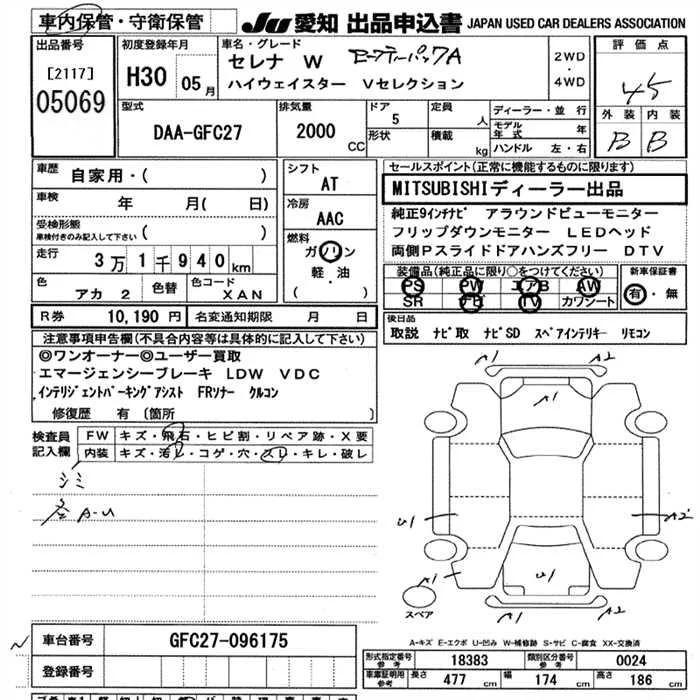 車内保管・守衛保管
JU 愛知 出品申込書 JAPAN USED CAR DEALERS ASSOCIATION
出品番号
[2117]
05069
初度登録年月
H30 05月
車名・グレード
セレナ W
ハイウェイスター Vセレクション
2WD
・
4WD
評価点
4.5
外装 内装
B B
型式
DAA-GFC27
排気量
2000 CC
ドア
5
形状
定員
人
積載
kg
ディーラー・並行
モデル年式 年
ハンドル 左・右
車歴
自家用・( )
車検
年 月( 日)
受検形態
車検付きのみ記入して下さい ( )
走行
3万1千940km
色
アカ 2
色替
色コード
XAN
シフト
AT
冷房
AAC
燃料
ガソリン
軽・油
( )
セールスポイント(正常に機能するものに限ります)
MITSUBISHIディーラー出品
純正9インチナビ アラウンドビューモニター
フリップダウンモニター LEDヘッド
両側Pスライドドアハンズフリー DTV
装備品(純正品に限り○をつけてください)
PS PW エアB AW
SR ナビ TV カワシート
新車保証書
有・無
R券 10,190円 名変通知期限 月 日
後日品
取説 ナビ取 ナビSD スペアインテリキー リモコン
注意事項申告欄(不具合内容等は具体的に記入して下さい)
◎ワンオーナー◎ユーザー買取
エマージェンシーブレーキ LDW VDC
インテリジェントパーキングアシスト FRソナー クルコン
修復歴 有(箇所
検査員
記入欄
FW キズ・飛石・ヒビ割・リペア跡・X要
内装 キズ・汚レ・コゲ・穴・スレ・キレ・破レ
シミ
A-U
A1 A2
A1
U1 A2
A1 U1 A1
スペア
A-キズ E-エクボ U-凹み W-補修跡 S-サビ C-腐食 XX-交換済
車台番号 GFC27-096175
登録番号
形式指定番号
参考
18383
類別区分番号
参考
0024
車庫証明用
参考
長さ 477 cm 幅 174 cm 高さ 186 cm